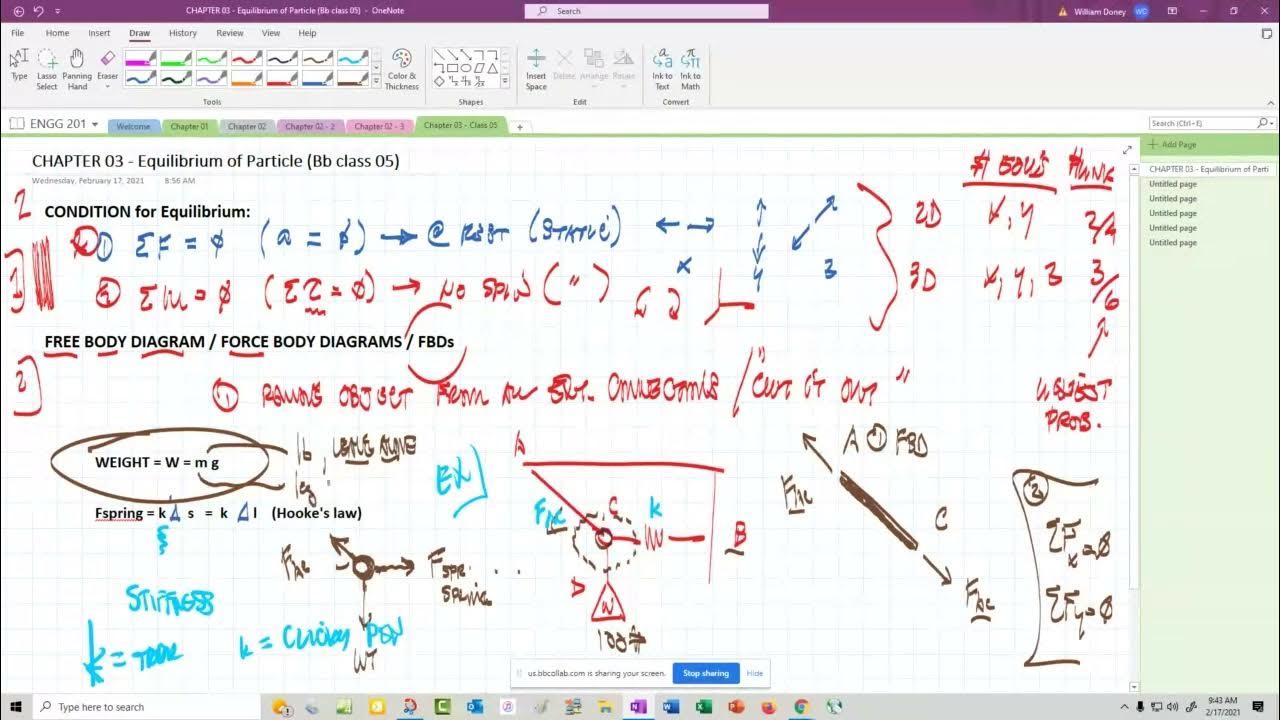 CHAPTER 03 - Equilibrium of Particle (Bb class 05) - OneNote
Search
William Doney
WC
File Home Insert Draw History Review View Help
Type
Lasso Select
Panning Hand
Eraser
Color & Thickness
Insert Space
Delete
Arrange
Rotate
Ink to Text
Ink to Math
Tools
Shapes
Edit
Convert
ENGG 201
Welcome Chapter 01 Chapter 02 Chapter 02 - 2 Chapter 02 - 3 Chapter 03 - Class 05
Search (Ctrl+E)
Add Page
CHAPTER 03 - Equilibrium of Parti
Untitled page
Untitled page
Untitled page
Untitled page
Untitled page
CHAPTER 03 - Equilibrium of Particle (Bb class 05)
Wednesday, February 17, 2021 8:56 AM
2
CONDITION for Equilibrium:
① ΣF = ϕ (a = ϕ) → @ REST (STATIC)
x y 3
2D x, y 2/4
② ΣM = ϕ (Στ = ϕ) → NO SPIN (")
3D x, y, 3 3/6
FREE BODY DIAGRAM / FORCE BODY DIAGRAMS / FBDs
① OBJECT FROM EXT. CONNECTIONS / "CUT IT OUT"
PROB.
WEIGHT = W = m g
lb, LEAVE ALONE
kg
Fspring = k Δ s = k Δ l (Hooke's law)
STIFFNESS
k =
k = CLICKY PEN
F AC
F SPR.
SPRING
WT
EX
A
F AC
C
k
B
D
W
100#
A ① FBD
F AC
C
F AC
②
ΣFx = ϕ
ΣFy = ϕ
us.bbcollab.com is sharing your screen.
Stop sharing
Hide
Type here to search
9:43 AM
2/17/2021